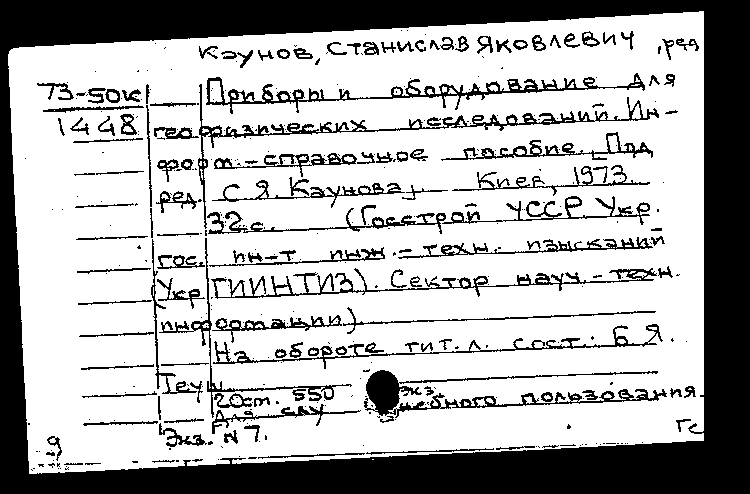 Каунов, Станислав Яковлевич, ред
73-50к Приборы и оборудование для
1448 геофизических исследований. Ин-
форм.-справочное пособие. [Под
ред. С. Я. Каунова]. Киев, 1973.
32 с. (Госстрой УССР. Укр.
гос. ин-т инж.-техн. изысканий
(УкрГИИНТИЗ). Сектор науч.-техн.
информации).
На обороте тит. л. сост.: Б. Я.
20 ст. 550 экз.
Для служебного пользования.
Экз. N 7.
9